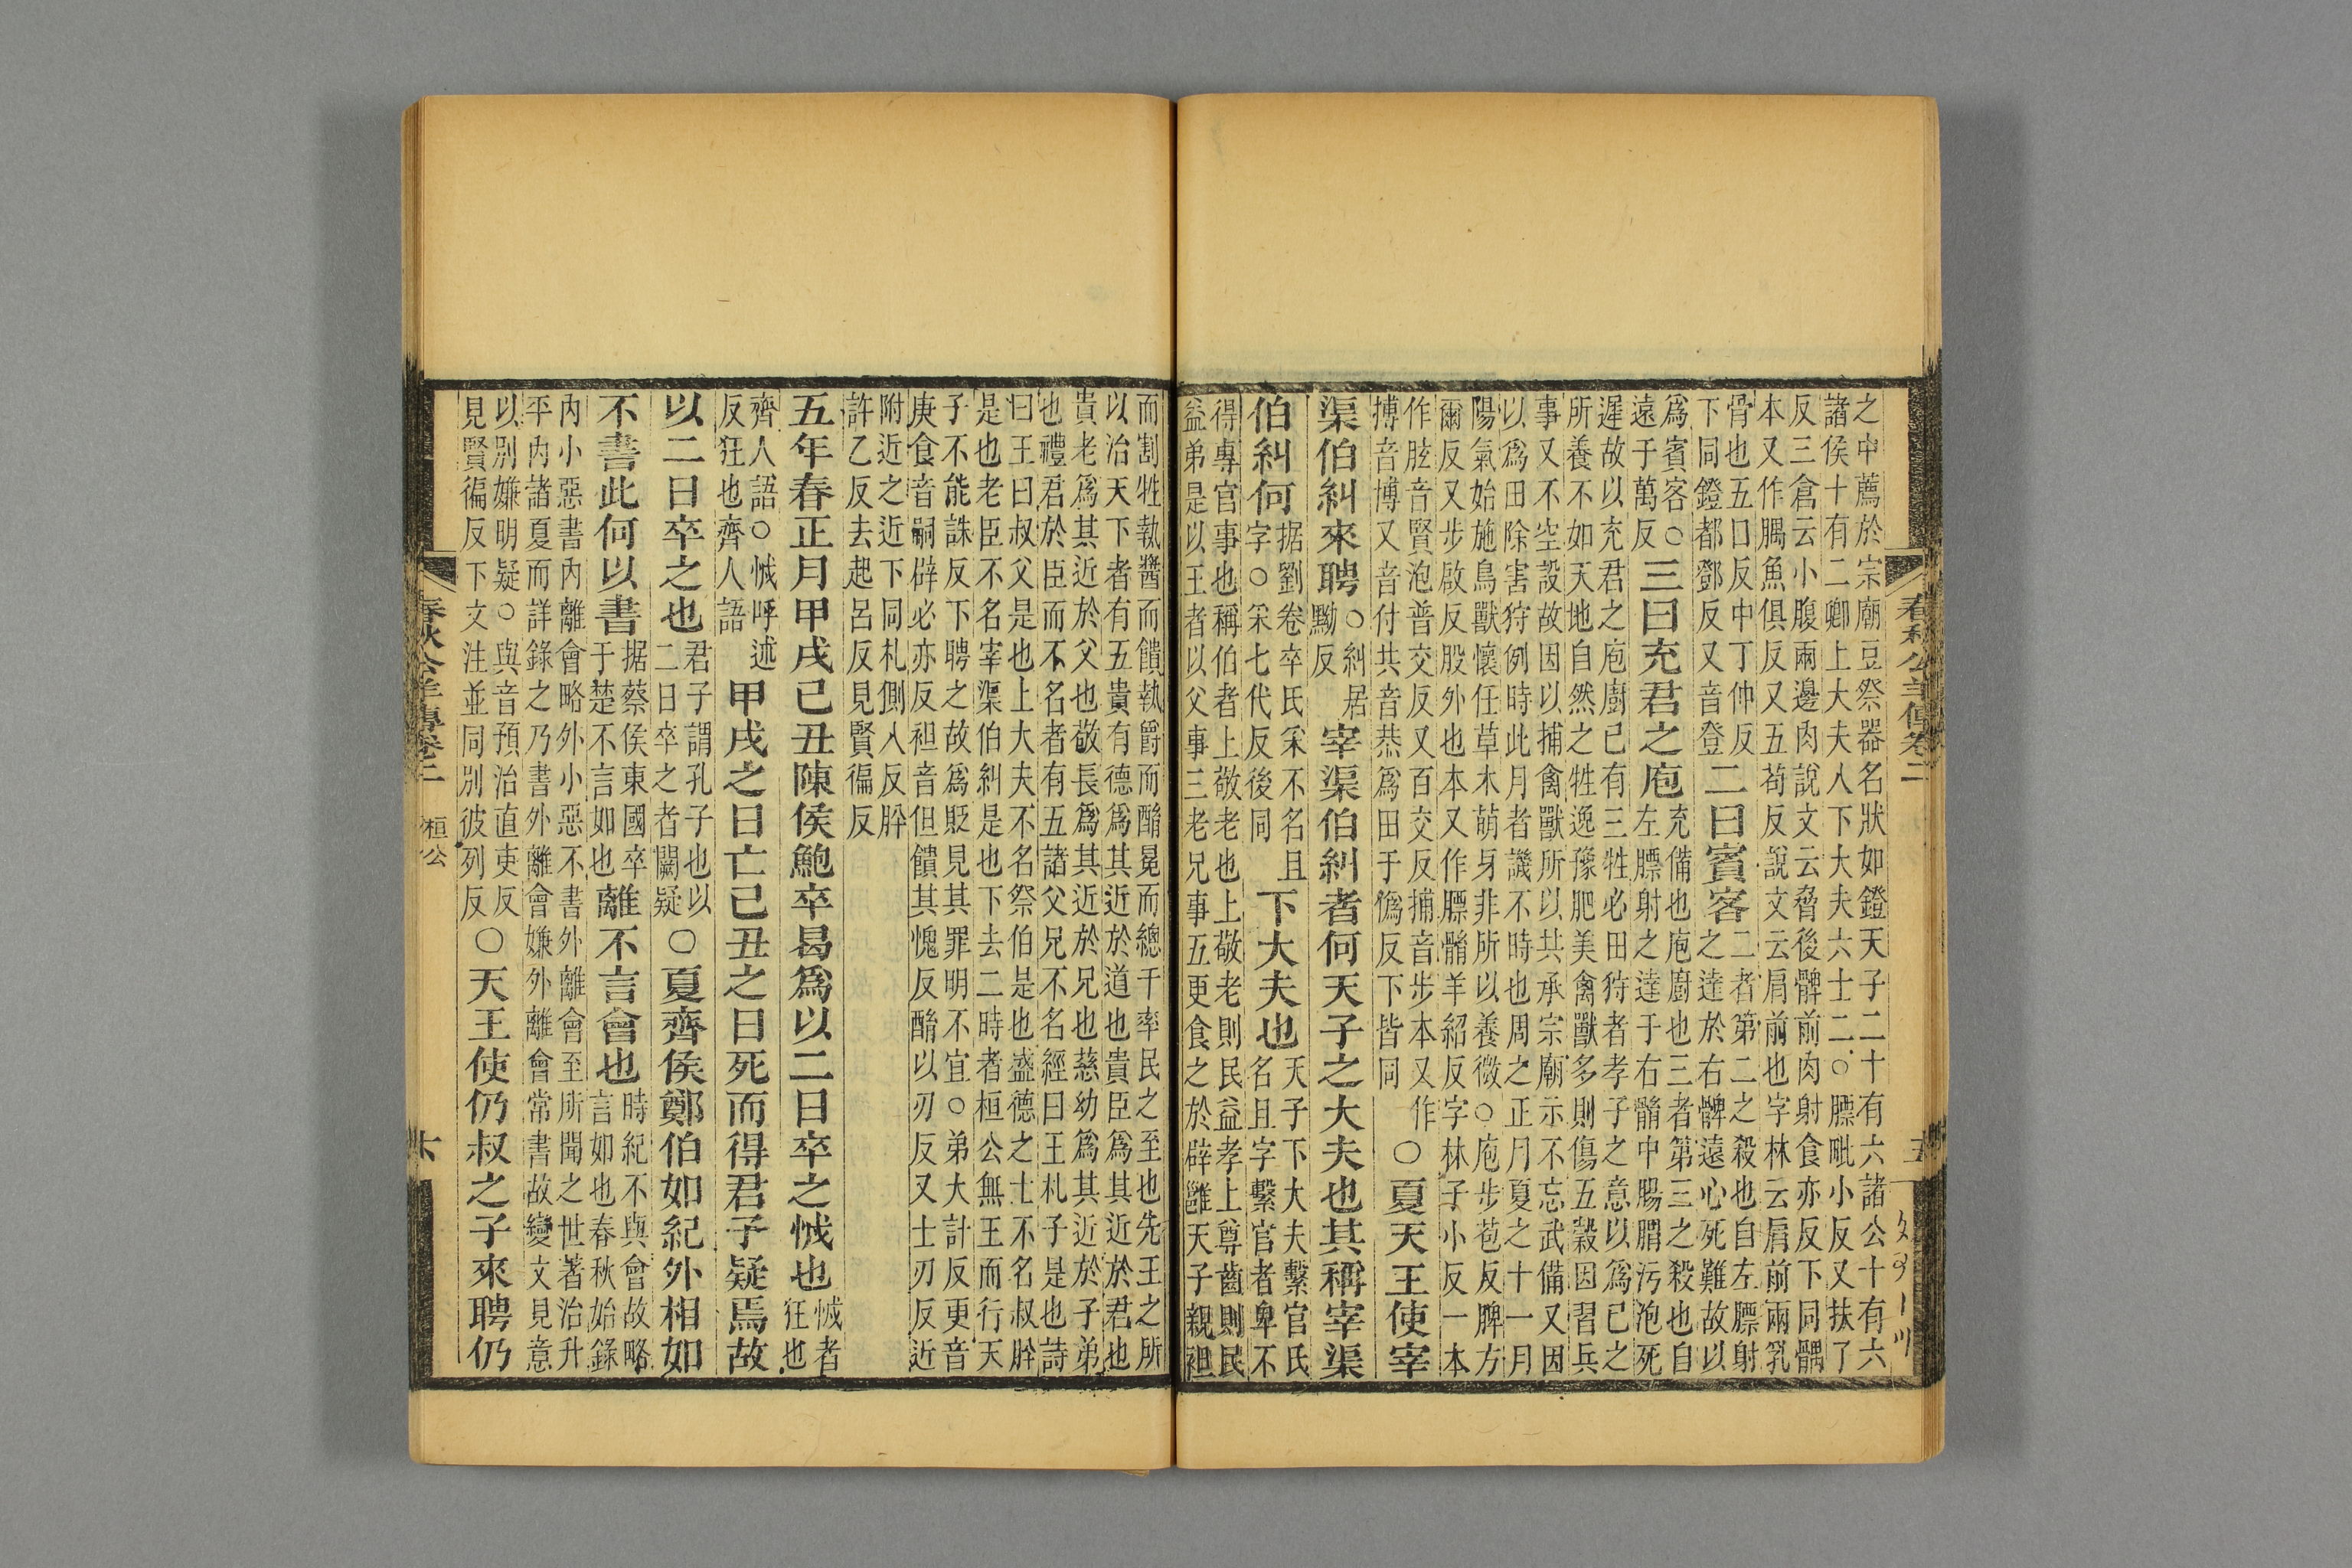 之中薦於宗廟豆祭器名狀如鐙天子二十有六諸公十有六
諸侯十有二卿上大夫八下大夫六士二○膘毗小反又扶了
反三倉云小腹兩邊肉說文云脅後髀前肉射食亦反下同髃
本又作腢魚俱反又五苟反說文云肩前也字林云肩前兩乳
骨也五口反中丁仲反下同鐙都鄧反又音登二曰賓客二者第二之殺也自左膘射之達於右髀遠心死難故以
爲賓客○遠于萬反三曰充君之庖充備也庖廚也三者第三之殺也自左膘射之達于右䯚中腸胃污泡死
遲故以充君之庖廚已有三牲必田狩者孝子之意以爲己之
所養不如天地自然之牲逸豫肥美禽獸多則傷五穀因習兵
事又不空設故因以捕禽獸所以共承宗廟示不忘武備又因
以爲田除害狩例時此月者譏不時也周之正月夏之十一月
陽氣始施鳥獸懷任草木萌牙非所以養微○庖步苞反脾方
爾反又步啟反股外也本又作膘䯚羊紹反字林子小反一本
作胘音賢泡普交反又百交反捕音步本又作搏音博又音付共音恭爲田于僞反下皆同○夏天王使宰
渠伯糾來聘○糾居黝反宰渠伯糾者何天子之大夫也其稱宰渠
伯糾何据劉卷卒氏采不名且字○采七代反後同下大夫也天子下大夫繫官氏名且字繫官者卑不
得專官事也稱伯者上敬老也上敬老則民益孝上尊齒則民
益弟是以王者以父事三老兄事五更食之於辟雝天子親袒
而割牲執醬而饋執爵而酳冕而總干率民之至也先王之所
以治天下者有五貴有德爲其近於道也貴臣爲其近於君也
貴老爲其近於父也敬長爲其近於兄也慈幼爲其近於子弟
也禮君於臣而不名者有五諸父兄不名經曰王札子是也詩
曰王曰叔父是也上大夫不名祭伯是也盛德之士不名叔肸
是也老臣不名宰渠伯糾是也下去二時者桓公無王而行天
子不能誅反下聘之故爲貶見其罪明不宜○弟大計反更音
庚食音嗣辟必亦反袒音但饋其愧反酳以刃反又士刃反近
附近之近下同札側八反肸
許乙反去起呂反見賢徧反
五年春正月甲戌己丑陳侯鮑卒曷爲以二日卒之怴也怴者狂也
齊人語○怴呼述反狂也齊人語甲戌之日亡己丑之日死而得君子疑焉故
以二日卒之也君子謂孔子也以二日卒之者闕疑○夏齊侯鄭伯如紀外相如
不書此何以書据蔡侯東國卒于楚不言如也離不言會也時紀不與會故略言如也春秋始錄
內小惡書內離會略外小惡不書外離會至所聞之世著治升
平內諸夏而詳錄之乃書外離會嫌外離會常書故變文見意
以別嫌明疑○與音預治直吏反
見賢徧反下文注並同別彼列反○天王使仍叔之子來聘仍
春秋公羊傳卷二
桓公